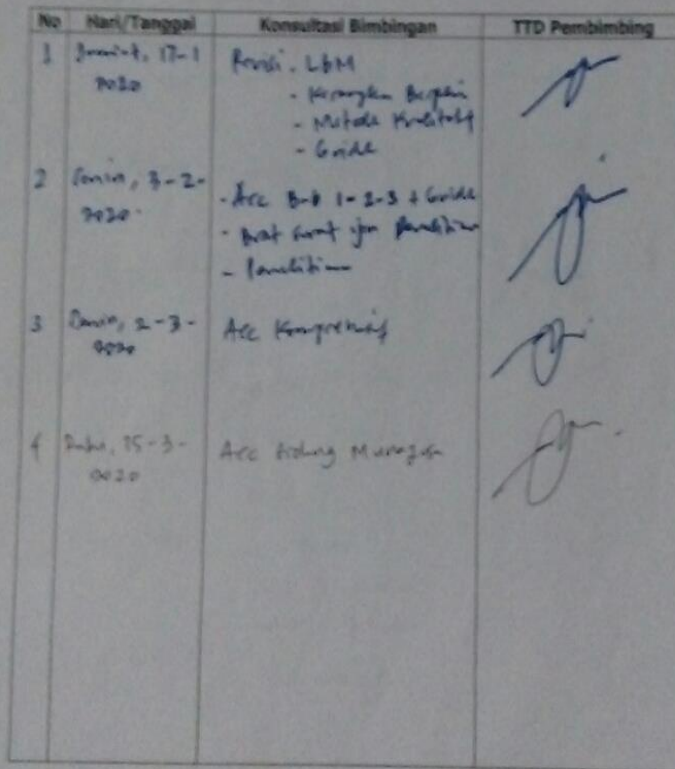 No Hari/Tanggal Konsultasi Bimbingan TTD Pembimbing
1 Jum'at, 17-1 Revisi. LBM
2020 - Kerangka Berpikir
- Metode Kualitatif
- Guide
2 Senin, 3-2- - Acc Bab 1-2-3 + Guide
2020 - Buat surat ijin Penelitian
- Penelitian
3 Senin, 2-3- Acc Komprehensif
2020
4 Rabu, 25-3- Acc Sidang Munaqosah
2020